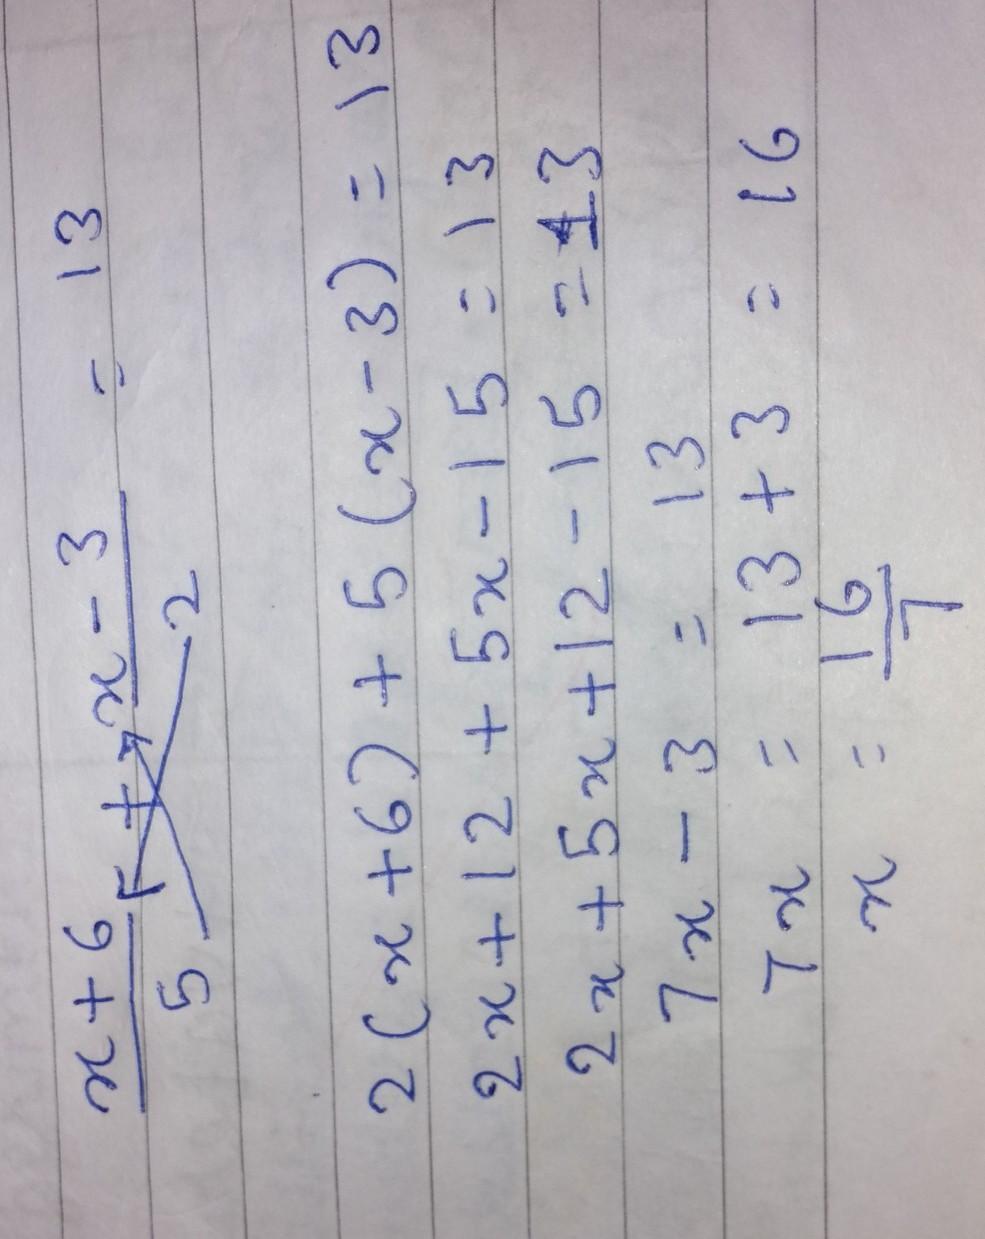 x + 6 + x - 3 = 13
5 2
2(x + 6) + 5(x - 3) = 13
2x + 12 + 5x - 15 = 13
2x + 5x + 12 - 15 = 13
7x - 3 = 13
7x = 13 + 3 = 16
x = 16
7